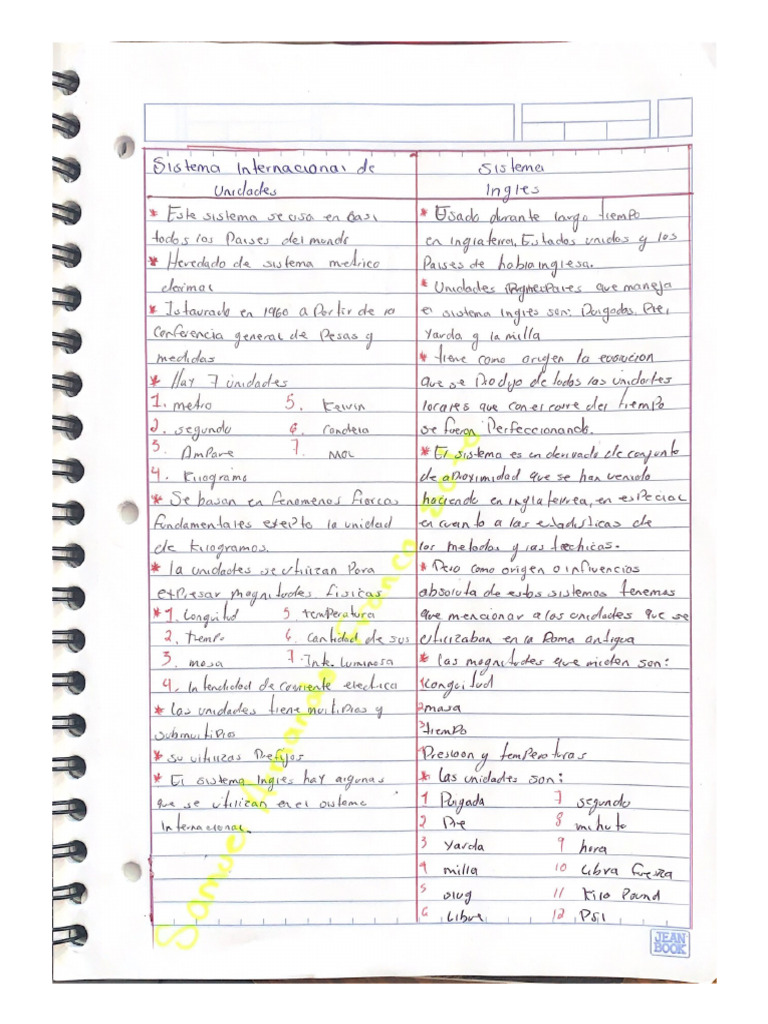 Sistema Internacional de
Unidades
* Este sistema se usa en casi
todos los Paises del mundo
* Heredado de sistema metrico
decimal
* Istaurado en 1960 a Partir de la
Conferencia general de Pesas y
medidas
* Hay 7 unidades
1. metro 5. Kelvin
2. segundo 6. Candela
3. Ampare 7. Mol
4. Kilogramo
* Se basan en Fenomenos Fisicas
Fundamentales exepto la unidad
de Kilogramos.
* la unidades se utilizan Para
expresar magnitudes Fisicas
* 1. Longuitud 5. temperatura
2. tiempo 6. Cantidad de sus
3. masa 7. Int. luminosa
4. Intencidad de corriente electrica
* Las unidades tiene multiplos y
submultiplos
* su utilizas Prefijos
* El sistema Ingles hay algunas
que se utilizan en el sistema
Internacional.
Sistema
Ingles
* Usado durante largo tiempo
en inglaterra, Estados unidos y los
Paises de habla inglesa.
* Unidades que maneja
el sistema Ingles son: Pulgadas, Pie,
Yarda y la milla
* tiene como origen la evolucion
que se Produjo de todas las unidades
locales que con el corre del tiempo
se fueron Perfeccionando.
* El sistema es en derivado de conjunto
de aproximidad que se han venido
haciendo en inglaterrea, en especial
en cuanto a las estadisticas de
los metodos y las tecnicas.
* Pero como origen o influencias
absoluta de estos sistemas tenemos
que mencionar a las unidades que se
utilizaban en la Roma antigua
* las magnitudes que miden son:
1 Longuitud
2 masa
3 tiempo
4 Presioon y temperaturas
* las unidades son:
1 Pulgada 7 segundo
2 Pie 8 minuto
3 Yarda 9 hora
4 milla 10 Libra fuerza
5 slug 11 Kilo Pound
6 Libra 12 PSI
Samuel Armando Franco Soto
JEAN
BOOK